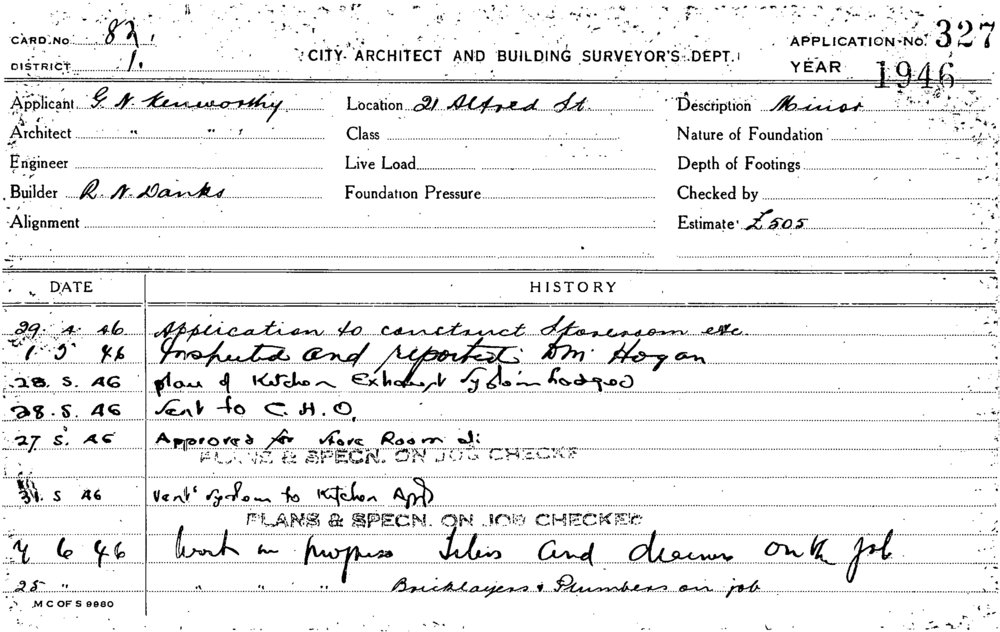 CARD No. 82.
DISTRICT 1.
CITY ARCHITECT AND BUILDING SURVEYOR'S DEPT.
APPLICATION No. 327
YEAR 1946
Applicant G. N. Kenworthy Location 21 Alfred St. Description Minor
Architect " " Class Nature of Foundation
Engineer Live Load Depth of Footings
Builder R. N. Danks Foundation Pressure Checked by
Alignment Estimate £505
DATE HISTORY
29. 4. 46 Application to construct Storeroom etc.
1 5 46 Inspected and reported DM Hogan
28. 5. 46 plan of Kitchen Exhaust System Lodged
28. 5. 46 Sent to C. H. O.
27 5. 46 Approved for Store Room
PLANS & SPECN. ON JOB CHECKE
31. 5 46 Vent System to Kitchen Appd
PLANS & SPECN. ON JOB CHECKED
7 6 46 Work in progress and on the job
25 " " " " Bricklayers & Plumbers on job
M C OF S 9980